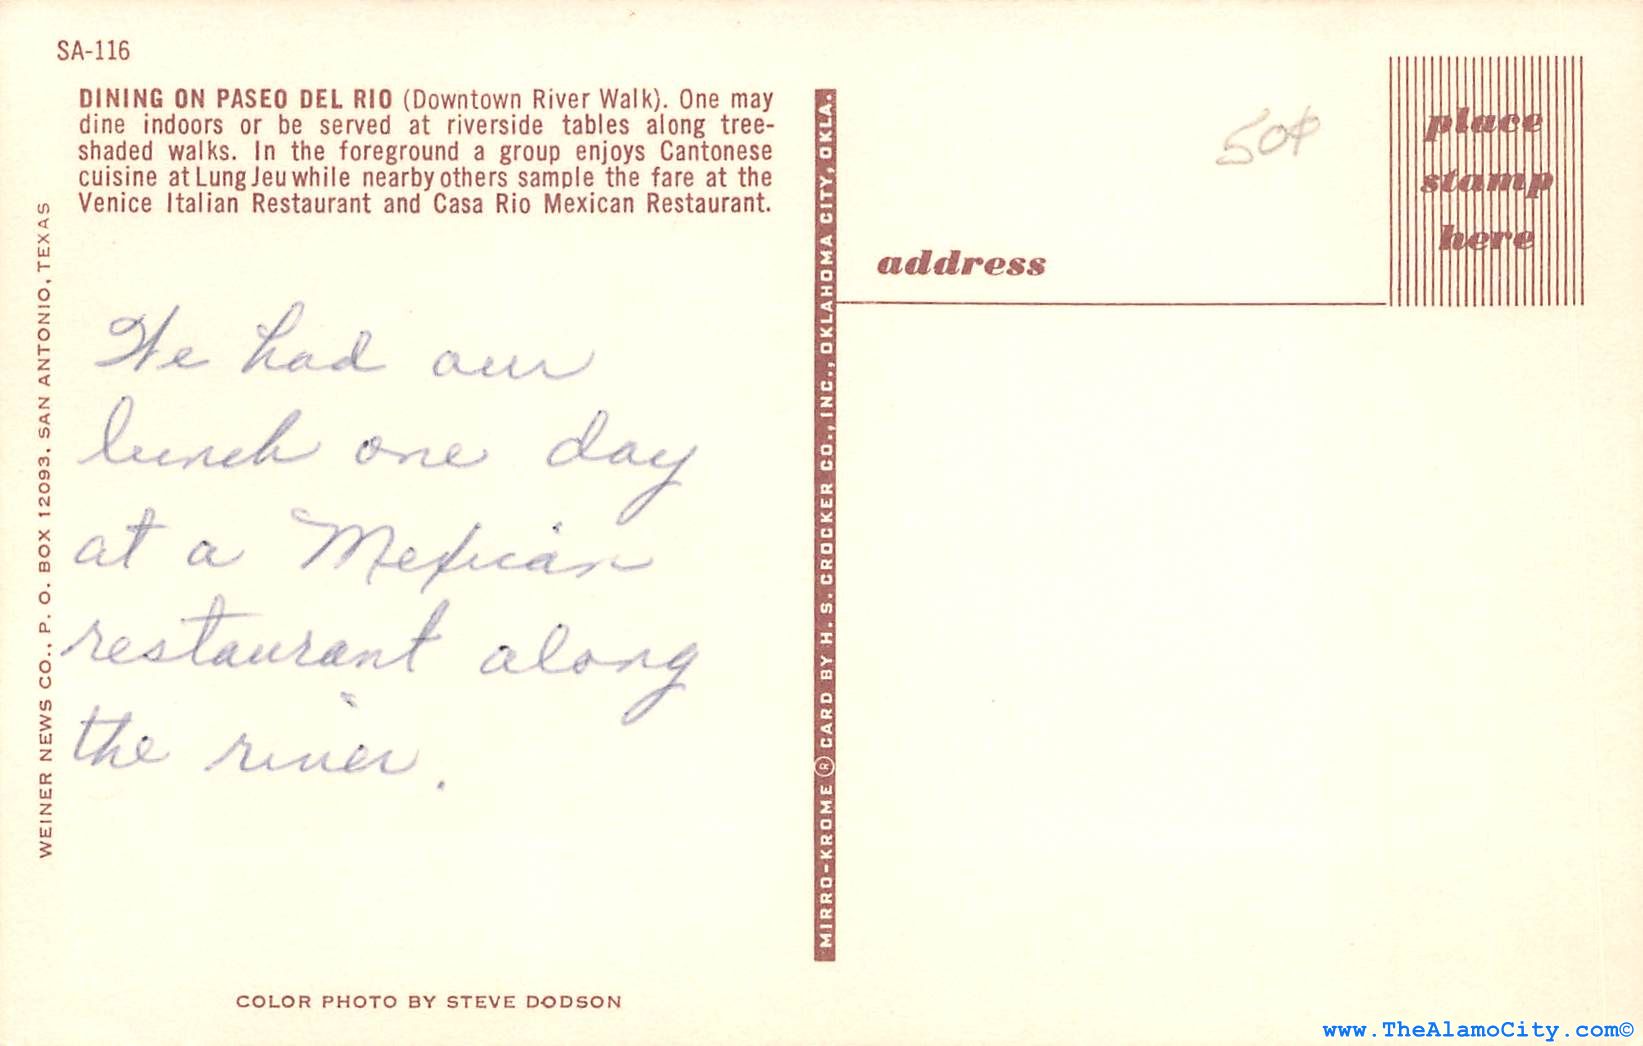 SA-116
DINING ON PASEO DEL RIO (Downtown River Walk). One may
dine indoors or be served at riverside tables along tree-
shaded walks. In the foreground a group enjoys Cantonese
cuisine at Lung Jeu while nearby others sample the fare at the
Venice Italian Restaurant and Casa Rio Mexican Restaurant.
WEINER NEWS CO., P. O. BOX 12093, SAN ANTONIO, TEXAS
We had our
lunch one day
at a Mexican
restaurant along
the river.
COLOR PHOTO BY STEVE DODSON
MIRRO-KROME ® CARD BY H. S. CROCKER CO., INC., OKLAHOMA CITY, OKLA.
50¢
place
stamp
here
address
www.TheAlamoCity.com©